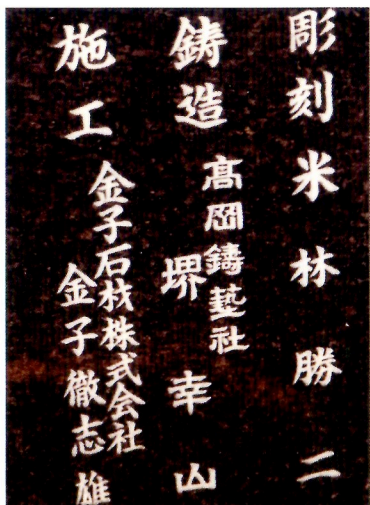 彫刻米林勝二
鋳造
高岡鑄藝社
堺幸山
施工
金子石材株式会社
金子徹志雄